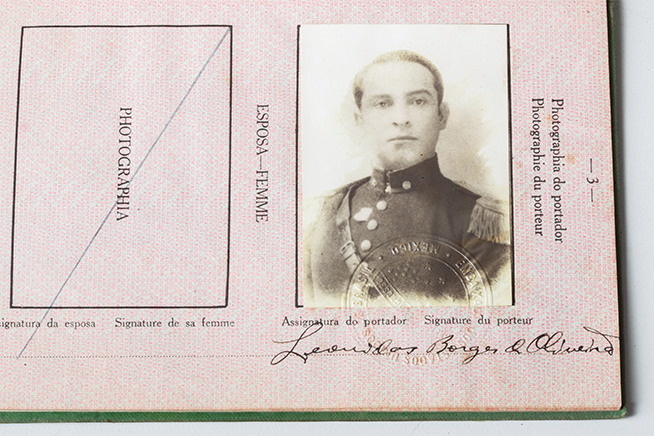 — 3 —
Photographia do portador
Photographie du porteur
ESPOSA—FEMME
PHOTOGRAPHIA
signatura da esposa Signature de sa femme
Assignatura do portador Signature du porteur
Leonidas Borges de Oliveira
MEXICO